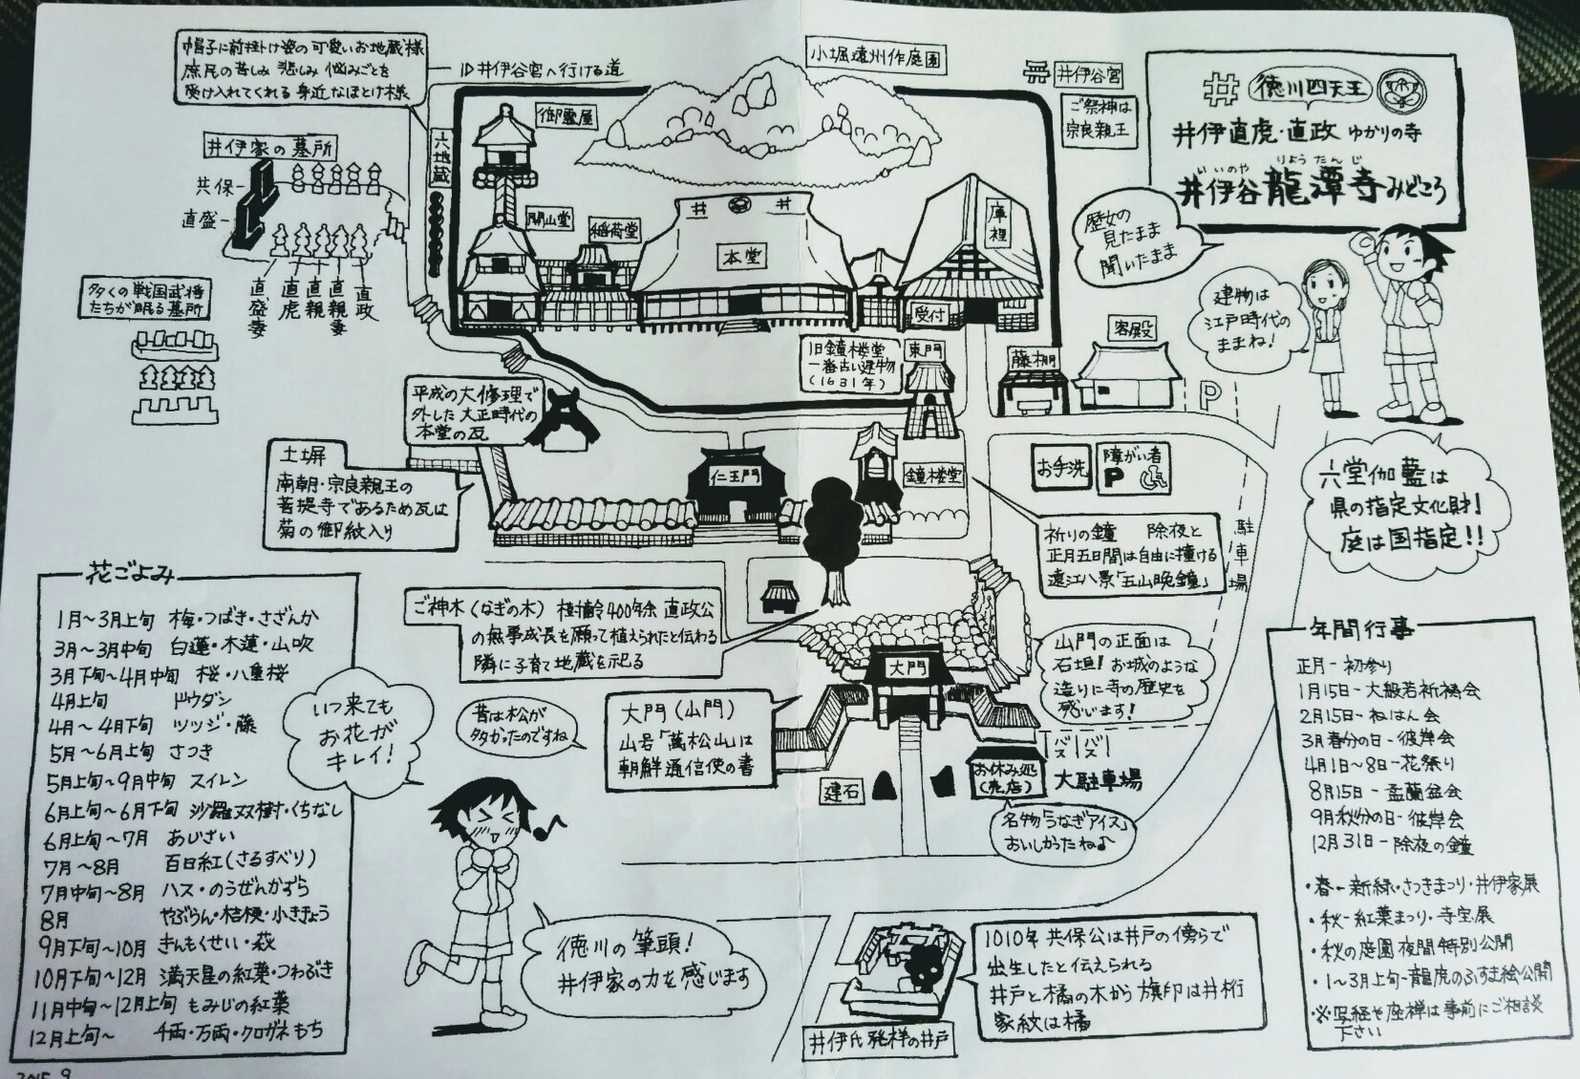 井
徳川四天王
井伊直虎・直政 ゆかりの寺
いいのや りょうたんじ
井伊谷 龍潭寺 みどころ
歴女の
見たまま
聞いたまま
建物は
江戸時代の
ままね!
六堂伽藍は
県の指定文化財!
庭は国指定!!
帽子に前掛け姿の可愛いお地蔵様
庶民の苦しみ 悲しみ 悩みごとを
受け入れてくれる 身近なほとけ様
旧井伊谷宮へ行ける道
小堀遠州作庭園
井伊谷宮
ご祭神は
宗良親王
六地蔵
御霊屋
開山堂
稲荷堂
井
井
本堂
庫裡
受付
井伊家の墓所
共保
直盛
直盛妻
直虎
直親
直親妻
直政
多くの戦国武将
たちが眠る墓所
旧鐘楼堂
一番古い建物
(1631年)
東門
藤棚
客殿
P
平成の大修理で
外した大正時代の
本堂の瓦
土塀
南朝・宗良親王の
菩提寺であるため瓦は
菊の御紋入り
仁王門
鐘楼堂
お手洗
障がい者
P
祈りの鐘 除夜と
正月五日間は自由に撞ける
遠江八景「五山晩鐘」
駐車場
ご神木(なぎの木) 樹齢400年余 直政公
の無事成長を願って植えられたと伝わる
隣に子育て地蔵を祀る
山門の正面は
石垣! お城のような
造りに寺の歴史を
感じます!
大門
昔は松が
多かったのですね
大門(山門)
山号「萬松山」は
朝鮮通信使の書
建石
お休み処
(売店)
バス
バス
大駐車場
名物「うなぎアイス」
おいしかったね♪
花ごよみ
1月～3月上旬 梅・つばき・さざんか
3月～3月中旬 白蓮・木蓮・山吹
3月下旬～4月中旬 桜・八重桜
4月上旬 ドウダン
4月～4月下旬 ツツジ・藤
5月～6月上旬 さつき
5月上旬～9月中旬 スイレン
6月上旬～6月下旬 沙羅双樹・くちなし
6月上旬～7月 あじさい
7月～8月 百日紅(さるすべり)
7月中旬～8月 ハス・のうぜんかずら
8月 やぶらん・桔梗・小ききょう
9月下旬～10月 きんもくせい・萩
10月下旬～12月 満天星の紅葉・つわぶき
11月中旬～12月上旬 もみじの紅葉
12月上旬～ 千両・万両・クロガネもち
いつ来ても
お花が
キレイ!
徳川の筆頭!
井伊家の力を感じます
井伊氏発祥の井戸
1010年 共保公は井戸の傍らで
出生したと伝えられる
井戸と橘の木から旗印は井桁
家紋は橘
年間行事
正月-初参り
1月15日-大般若祈祷会
2月15日-ねはん会
3月春分の日-彼岸会
4月1～8日-花祭り
8月15日-盂蘭盆会
9月秋分の日-彼岸会
12月31日-除夜の鐘
・春-新緑・さつきまつり・井伊家展
・秋-紅葉まつり・寺宝展
・秋の庭園夜間特別公開
・1～3月上旬-龍虎のふすま絵公開
・※写経や座禅は事前にご相談
下さい
2015.9